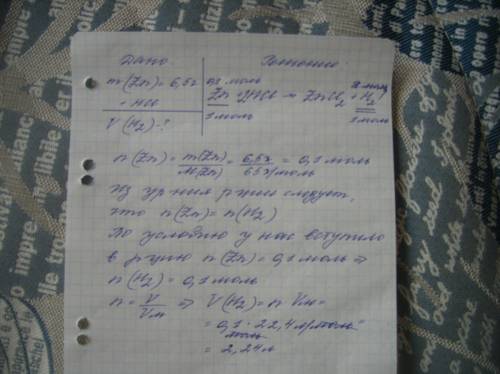 Дано
Решение
m(Zn) = 6,5г
+ HCl
V(H₂) - ?
0,1 моль x моль
Zn + 2HCl → ZnCl₂ + H₂↑
1 моль 1 моль
n(Zn) = m(Zn)/M(Zn) = 6,5г/65г/моль = 0,1 моль
Из ур-ния р-ции следует,
что n(Zn) = n(H₂)
По условию у нас вступило
в р-цию n(Zn) = 0,1 моль ⇒
n(H₂) = 0,1 моль
n = V/Vм ⇒ V(H₂) = n · Vм =
= 0,1 · 22,4 л/моль =
моль
= 2,24л